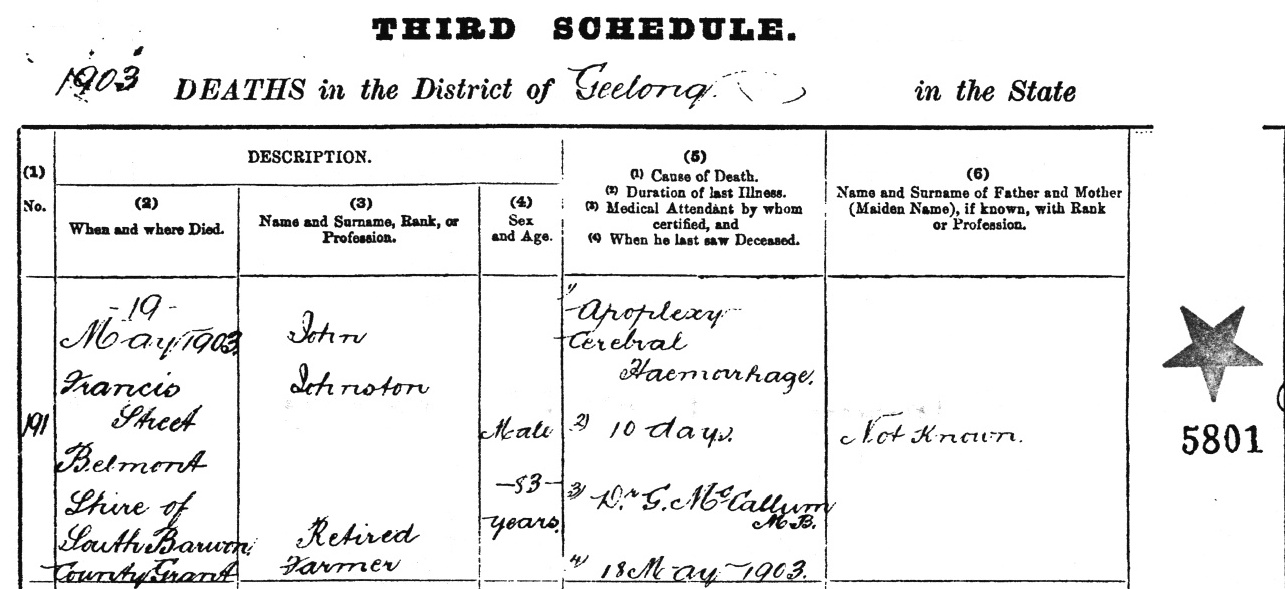 THIRD SCHEDULE.
1903 DEATHS in the District of Geelong. in the State
(1)
No.
DESCRIPTION.
(2)
When and where Died.
(3)
Name and Surname, Rank, or
Profession.
(4)
Sex
and Age.
(5)
(1) Cause of Death.
(2) Duration of last Illness.
(3) Medical Attendant by whom
certified, and
(4) When he last saw Deceased.
(6)
Name and Surname of Father and Mother
(Maiden Name), if known, with Rank
or Profession.
191
-19-
May 1903
Francis
Street
Belmont
Shire of
South Barwon
County Grant
John
Johnston
Retired
Farmer
Male
-83-
years.
1) Apoplexy
Cerebral
Haemorrhage.
2) 10 days.
3) Dr. G. McCallum
M.B.
4) 18 May 1903.
Not Known.
5801